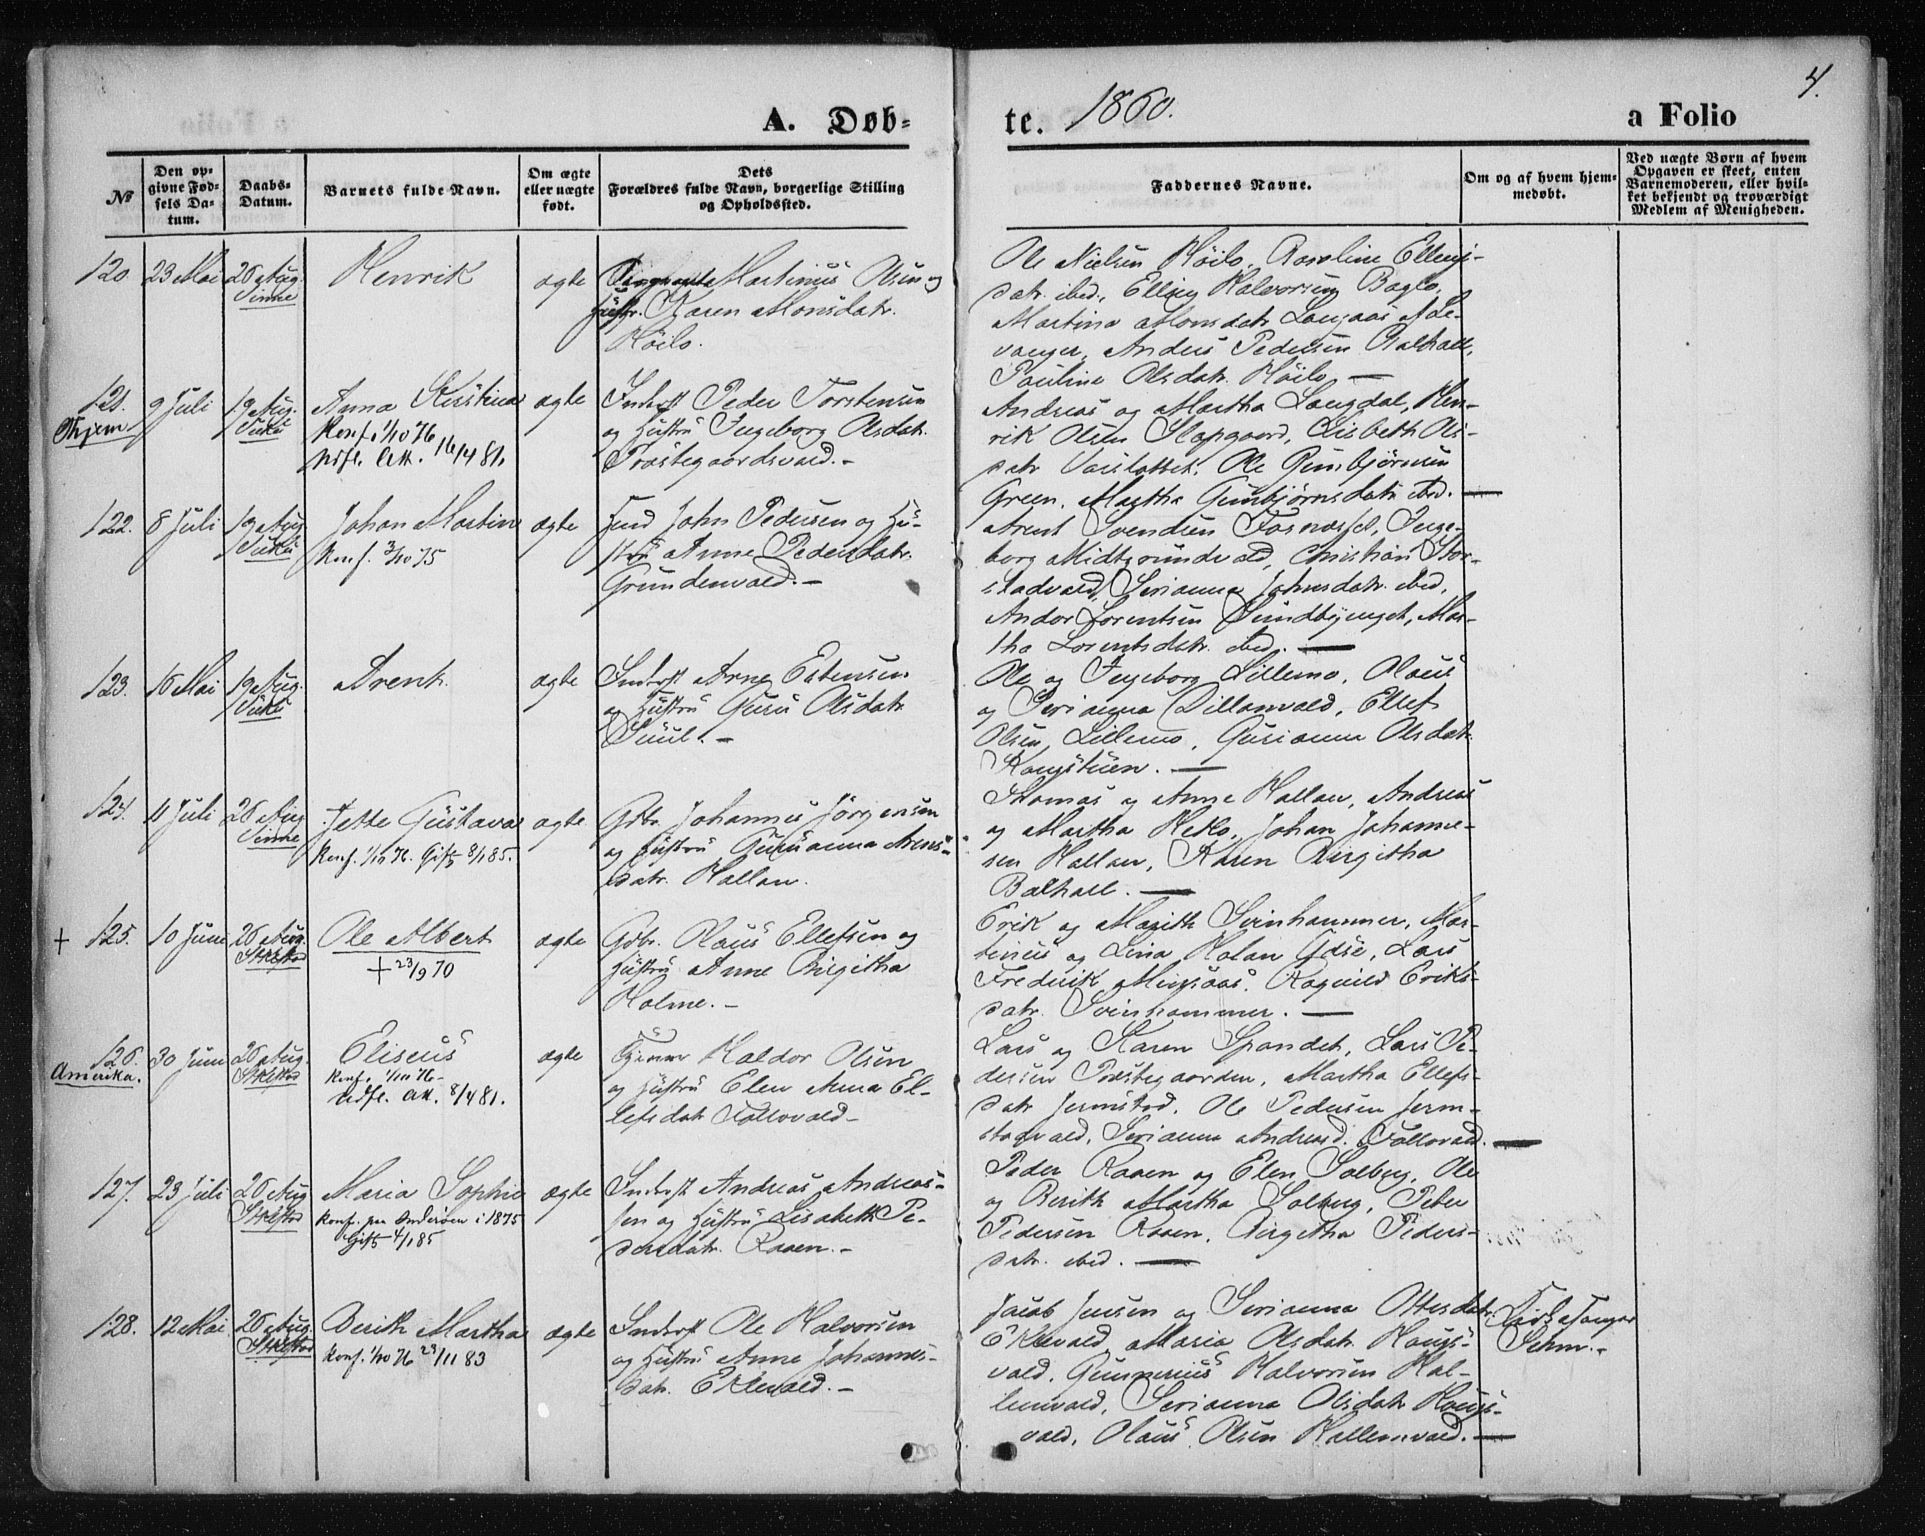 4.
A. Døb-
te. 1860.
a Folio
№
Den op-
givne Fød-
sels Da-
tum.
Daabs-
Datum.
Barnets fulde Navn.
Om ægte
eller uægte
født.
Dets
Forældres fulde Navn, borgerlige Stilling
og Opholdssted.
Faddernes Navne.
Om og af hvem hjem-
medøbt.
Ved uægte Børn af hvem
Opgaven er skeet, enten
Barnemoderen, eller hvil-
ket bekjendt og troværdigt
Medlem af Menigheden.
120. 23 Mai 26 Aug.
Vinne
Henrik
ægte
Martinus Olsen og
Hustr. Karen Monsdatr.
Höilo.
Ole Nielsen Höilo, Karoline Ellings-
datr. ibed., Elling Halvorsen Baglo,
Martina Monsdatr Langaas af Le-
vanger, Anders Pedersen Balhall,
Pauline Olsdatr. Höilo —
121.
Thjem
9 Juli 19 Aug.
Vuku
Anna Kirstina
Konf. 1/10 76
Udfl. Am. 16/4 81.
ægte
Inderst Peder Torstensen
og Hustru Ingeborg Olsdatr.
Præstegaardsvald. -
Andreas og Martha Langdal, Hen-
rik Olsen Slapgaard, Lisbeth Ols-
datr Vasslottet, Ole Gunbjørnsen
Green, Martha Gunbjørnsdatr ibd. —
122. 8 Juli 19 Aug
Vuku
Johan Martin
Konf. 3/10 75
ægte
John Pedersen og Hu-
stru Anne Pedersdatr.
Grundenvald. -
Arent Svendsen Fosnæsset, Inge-
borg Midtgrundvald, Christian Stor-
stadvald, Serianna Johnsdatr. ibed,
Andor Lorentsen Sundbyenget, Mar-
tha Lorentsdatr. ibed. —
123. 16 Mai 19 Aug.
Vuku
Arent
ægte
Inderst Arne Estensen
og Hustru Guru Olsdatr
Suul. -
Ole og Ingeborg Lillemo, Olaus
og Serianna Dillanvald, Ellef
Olsen Lillemo, Gurianna Olsdatr.
Kongstuen. —
124. 11 Juli 26 Aug
Vinne
Jette Gustava
Konf. 1/10 76. Gift 8/1 85.
ægte
Gdbr. Johannes Jörgensen
og Hustru Gurianna Arns-
datr. Hallan.
Thomas og Anne Hallan, Andreas
og Martha Heklo, Johan Johanne-
sen Hallan, Karen Birgitha
Balhall. —
+ 125. 10 Juni 26 Aug.
Stiklstad
Ole Albert
+ 23/9 70
ægte
Gdbr. Olaus Ellefsen og
Hustru Anne Birgitha
Holme. -
Erik og Margith Svinhammer, Mar-
tinus og Lina Holan Ydse, Lars
Frederik Mingsaas, Ragnild Eriks-
datr. Svinhammer. —
126.
Amerika.
30 Juni 26 Aug.
Stiklstad
Eliseus
Konf. 1/10 76 -
Udfl. Am. 8/4 81.
ægte
Haldor Olsen
og Hustru Elen Anna El-
lefsdatr Follovald -
Lars og Karen Spandet, Lars Pe-
dersen Præstegaarden, Martha Ellefs-
datr Jermstad, Ole Pedersen Jerm-
stadvald, Serianna Andreasd. Follovald. —
127. 23 Juli 26 Aug
Stiklstad
Maria Sophie
Konf. paa Inderøen i 1875
Gift 4/1 85
ægte
Inderst Andreas Andreas-
sen og Hustru Lisabeth Pe-
dersdatr. Raaen. -
Peder Raaen og Elen Solberg, Ole
og Berith Martha Solberg, Peter
Pedersen Raaen, Birgitha Peders-
datr. ibed. —
128. 12 Mai 26 Aug.
Stiklstad
Berith Martha
Konf. 1/10 76 29/11 83
ægte
Inderst Ole Halvorsen
og Hustru Anne Johannes-
datr. Eklovald. -
Jacob Jensen og Serianna Ottesdatr.
Eklovald, Maria Olsdatr. Haugs-
vald, Gunnerius Halvorsen Hal-
lemvald, Serianna Olsdatr Haugs-
vald, Olaus Olsen Hallemvald. —